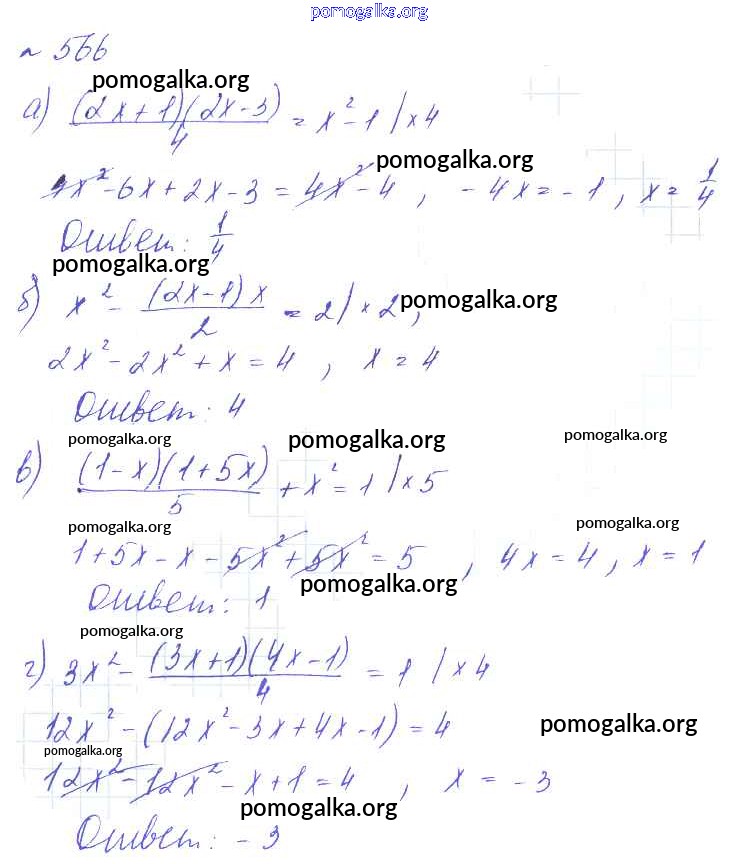 pomogalka.org
№ 566
pomogalka.org
а) (2x+1)(2x-3)/4 = x²-1 | ×4
pomogalka.org
4x²-6x+2x-3 = 4x²-4 , -4x = -1 , x = 1/4
Ответ: 1/4
pomogalka.org
б) x² - (2x-1)x/2 = 2 | ×2 ,
pomogalka.org
2x²-2x²+x = 4 , x = 4
Ответ: 4
pomogalka.org pomogalka.org pomogalka.org
в) (1-x)(1+5x)/5 + x² = 1 | ×5
pomogalka.org pomogalka.org
1+5x-x-5x²+5x² = 5 , 4x = 4 , x = 1
Ответ: 1
pomogalka.org
pomogalka.org
г) 3x² - (3x+1)(4x-1)/4 = 1 | ×4
12x²-(12x²-3x+4x-1) = 4
pomogalka.org
pomogalka.org
12x²-12x²-x+1 = 4 , x = -3
pomogalka.org
Ответ: -3